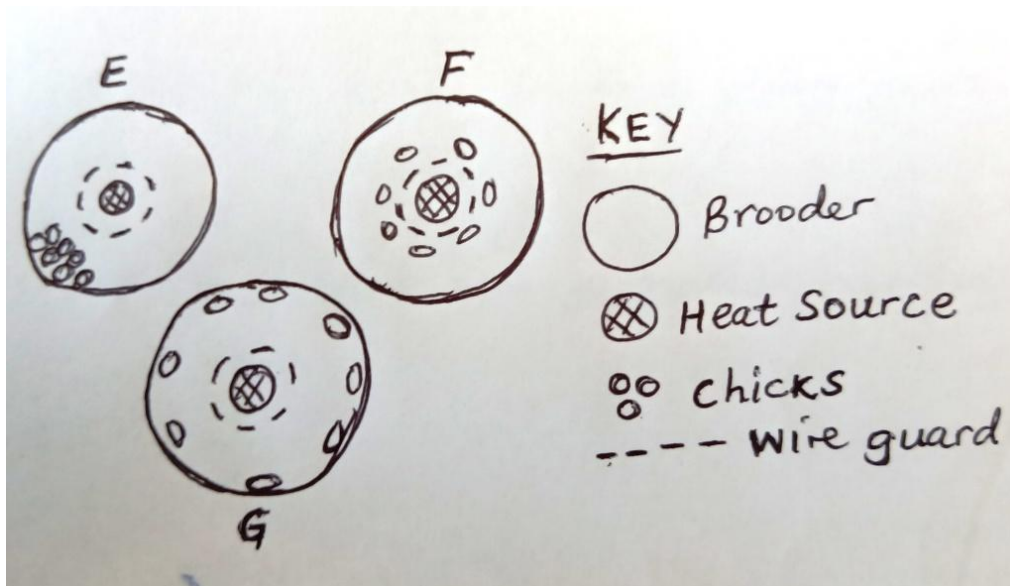 E
F
G
KEY
Brooder
Heat Source
chicks
wire guard